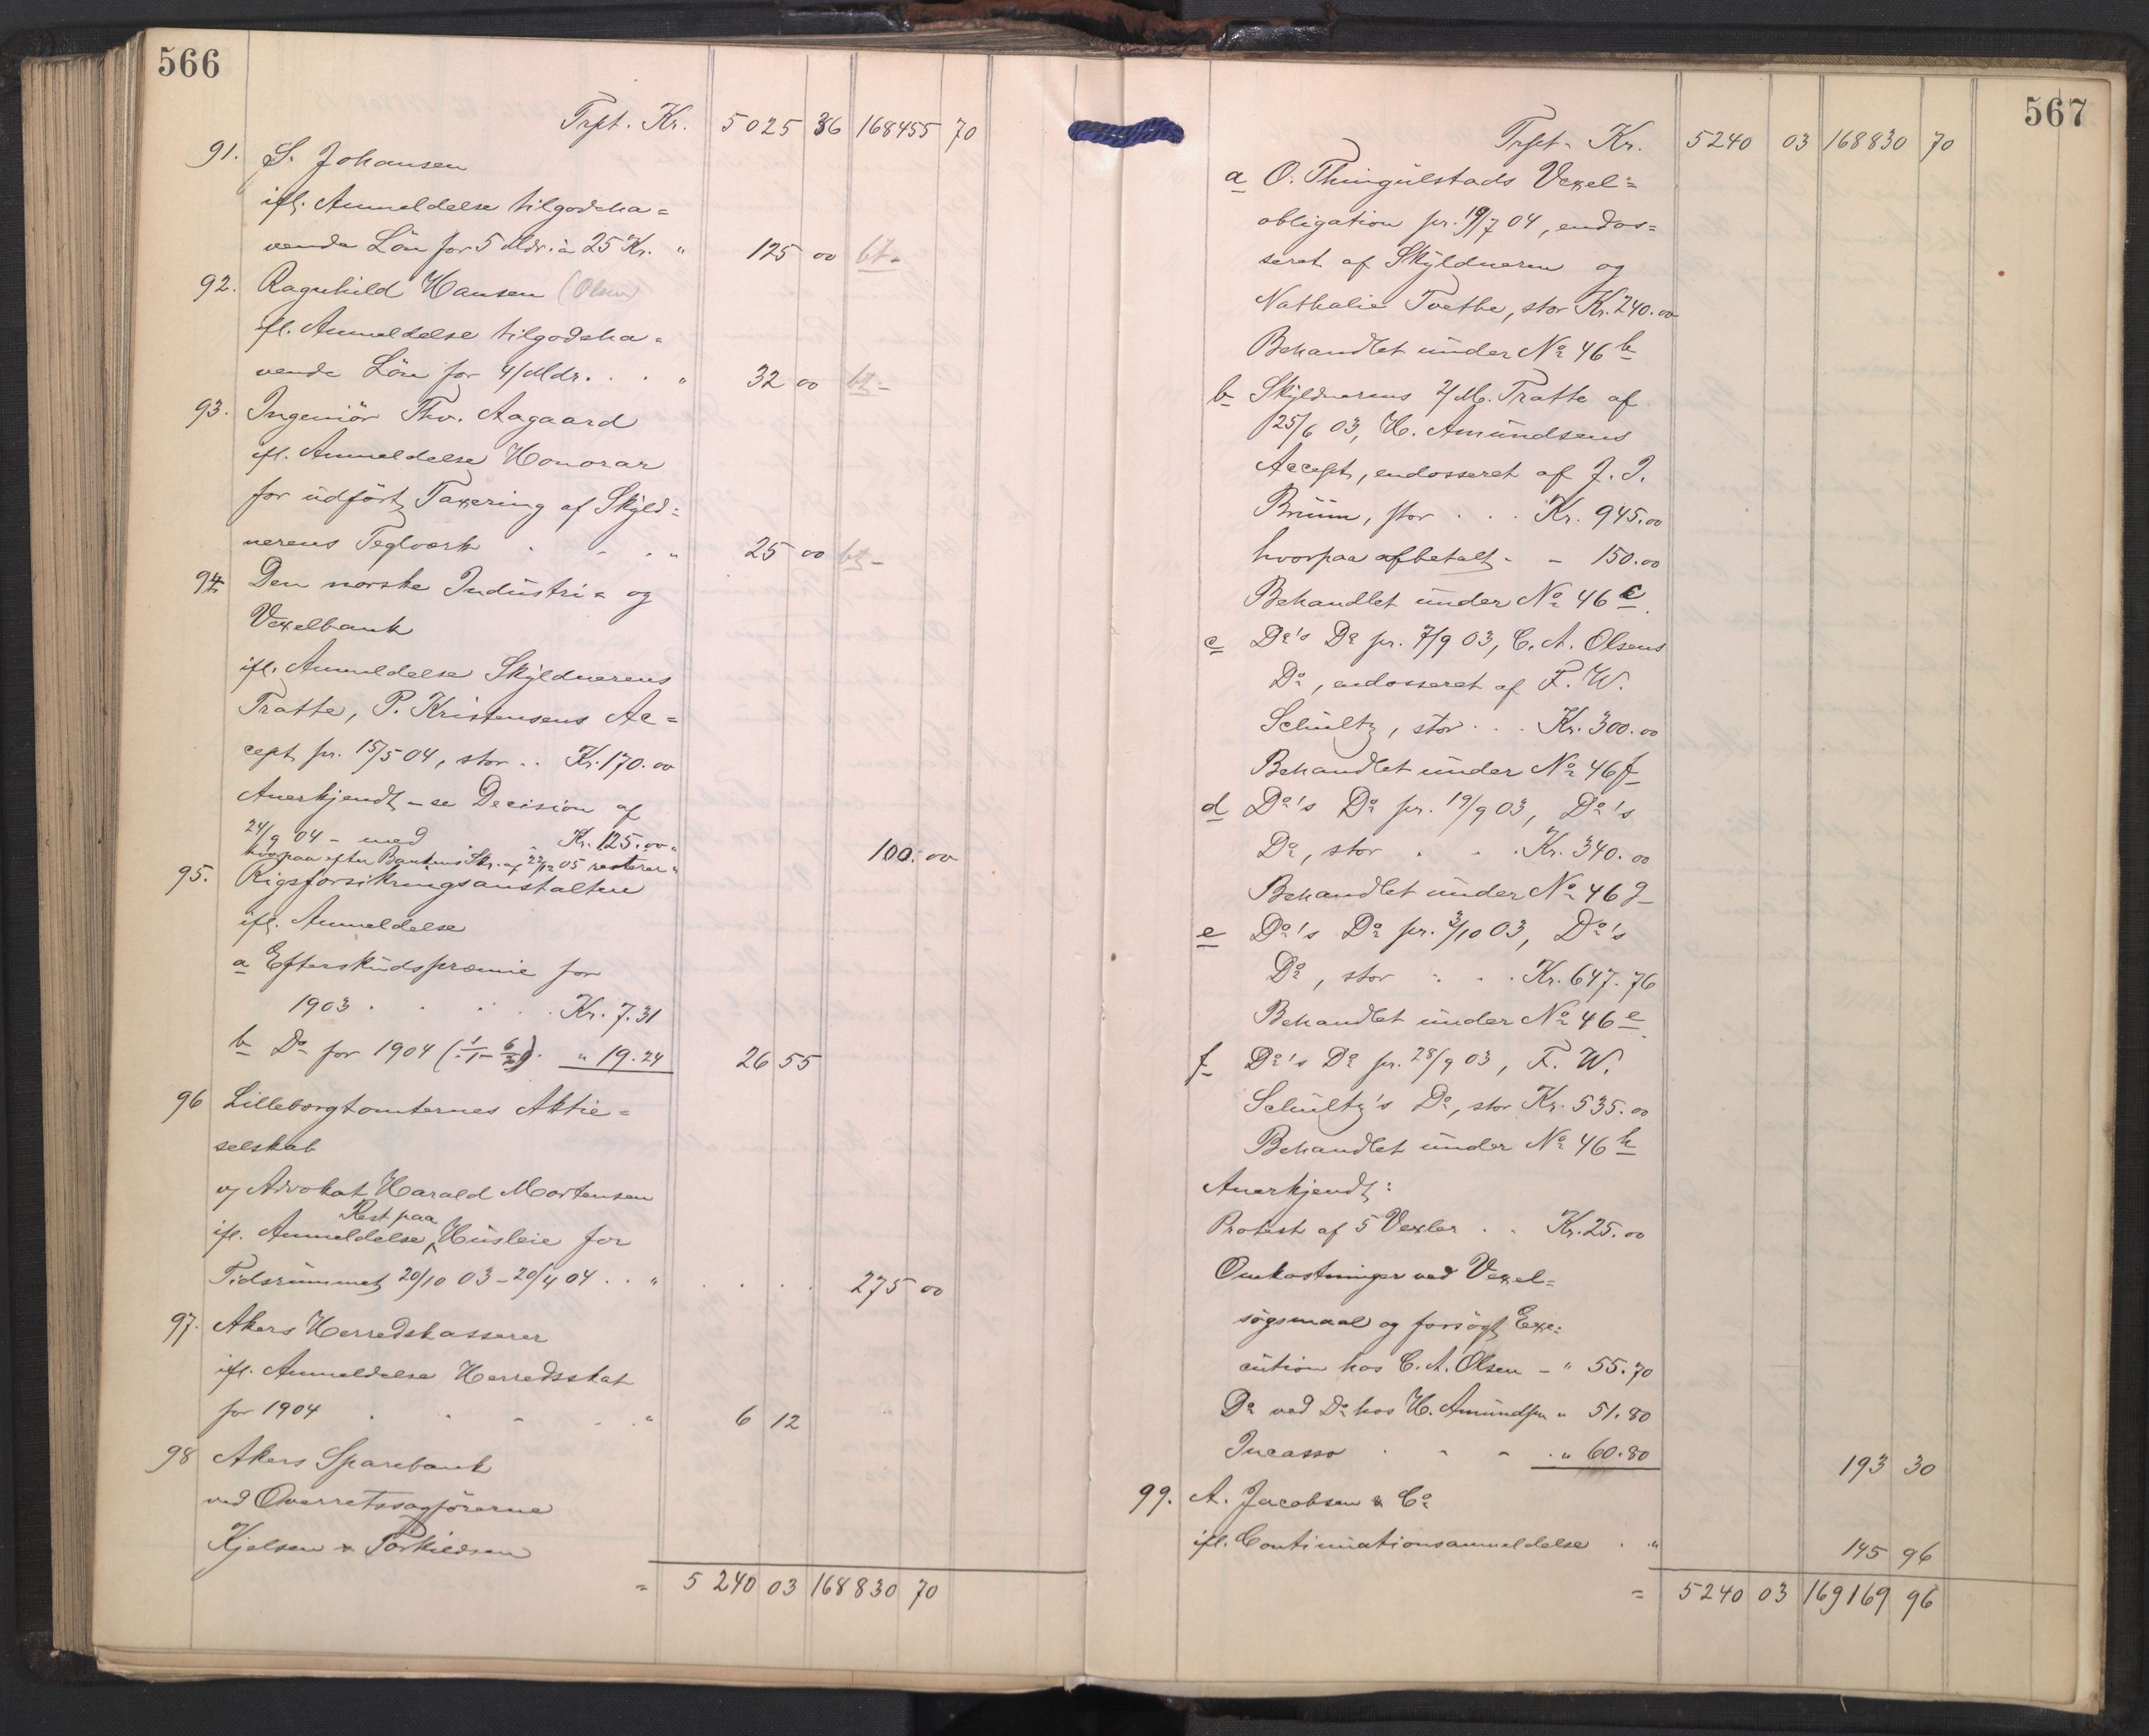 566
Trpt. Kr. 5025 36 168455 70
91. S. Johansen
ifl. Anmeldelse tilgodeha=
vende Løn for 5 Mdr. à 25 Kr. " 125 00 bt.
92. Ragnhild Hansen (Olsen)
ifl. Anmeldelse tilgodeha=
vende Løn for 4 Mdr. . . " 32 00 bt.
93. Ingeniör Thv. Aagaard
ifl. Anmeldelse Honorar
for udført Taxering af Skyld=
nerens Teglværk . . . " 25 00 bt.
94 Den norske Industri= og
Vexelbank
ifl. Anmeldelse Skyldnerens
Tratte, P. Kristensens Ac=
cept pr. 15/5 04, stor . . Kr. 170.00
Anerkjendt - se Decision af
24/9 04 - med . Kr. 125.00 "
hvorpaa efter Bankens Skr. af 22/12 05 resterer " 100.00
95. Rigsforsikringsanstalten
ifl. Anmeldelse
a Efterskudspræmie for
1903 . . . . Kr. 7.31
b Do for 1904 (1/1 - 6/7). " 19.24 26 55
96 Lilleborgtomternes Aktie=
selskab
v/ Advokat Harald Mortensen
Rest paa
ifl. Anmeldelse Husleie for
Tidsrummet 20/10 03 - 20/4 04 . . " . . . . 275 00
97. Akers Herredskasserer
ifl. Anmeldelse Herredsskat
for 1904 . . . . " 6 12
98 Akers Sparebank
ved Overretssagførerne
Kjelsen & Torkildsen
= 5 240 03 168 830 70
567
Trpt. Kr. 5240 03 168830 70
a O. Thingulstads Vexel=
obligation pr. 19/7 04, endos=
seret af Skyldneren og
Nathalie Tvethe, stor Kr. 240.00
Behandlet under No 46 b
b Skyldnerens 2/M. Tratte af
25/6 03, H. Amundsens
Accept, endosseret af J. J.
Bruun, stor . . . Kr. 945.00
hvorpaa afbetalt - - 150.00
Behandlet under No 46 c.
c Do's Do pr. 7/9 03, C. A. Olsens
Do, endosseret af F. W.
Schultz, stor . . Kr. 300.00
Behandlet under No 46 f
d Do's Do pr. 19/9 03, Do's
Do, stor . . . Kr. 340.00
Behandlet under No 46 g
e Do's Do pr. 3/10 03, Do's
Do, stor . . . Kr. 647.76
Behandlet under No 46 e.
f Do's Do pr. 28/9 03, F. W.
Schultz's Do, stor Kr. 535.00
Behandlet under No 46 h
Anerkjendt:
Protest af 5 Vexler . . Kr. 25.00
Omkostninger ved Vexel=
søgsmaal og forsøgt Exe=
cution hos C. A. Olsen - " 55.70
Do ved Do hos H. Amundsen " 51.80
Incasso . . . . " 60.80 193 30
99. A. Jacobsen & Co
ifl. Continuationsanmeldelse . . " 145 96
= 5240 03 169169 96